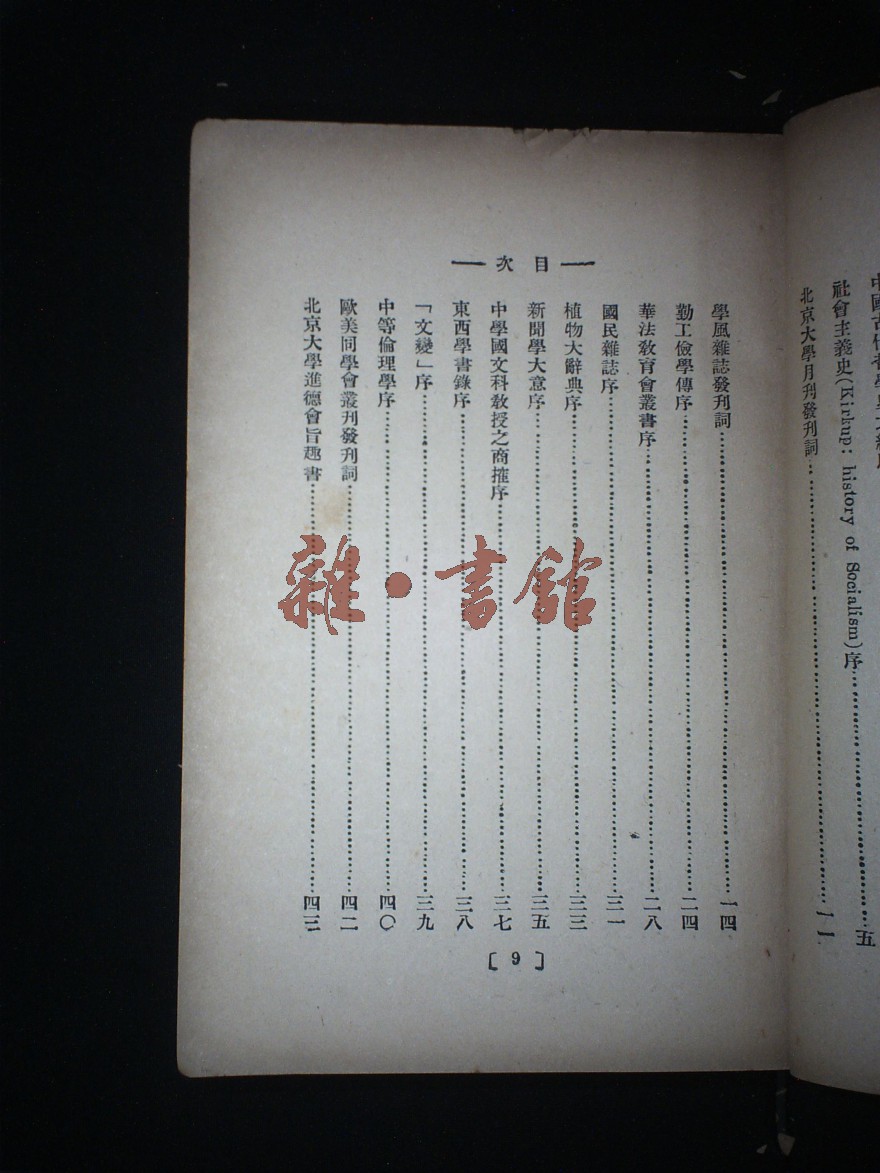 社會主義史(Kirkup: history of Socialism)序……五
北京大學月刊發刊詞……一一
目次
學風雜誌發刊詞……一四
勤工儉學傳序……二四
華法敎育會叢書序……二八
國民雜誌序……三一
植物大辭典序……三三
新聞學大意序……三五
中學國文科敎授之商搉序……三七
東西學書錄序……三八
「文變」序……三九
中等倫理學序……四〇
歐美同學會叢刊發刊詞……四二
北京大學進德會旨趣書……四三
[9]
雜·書館